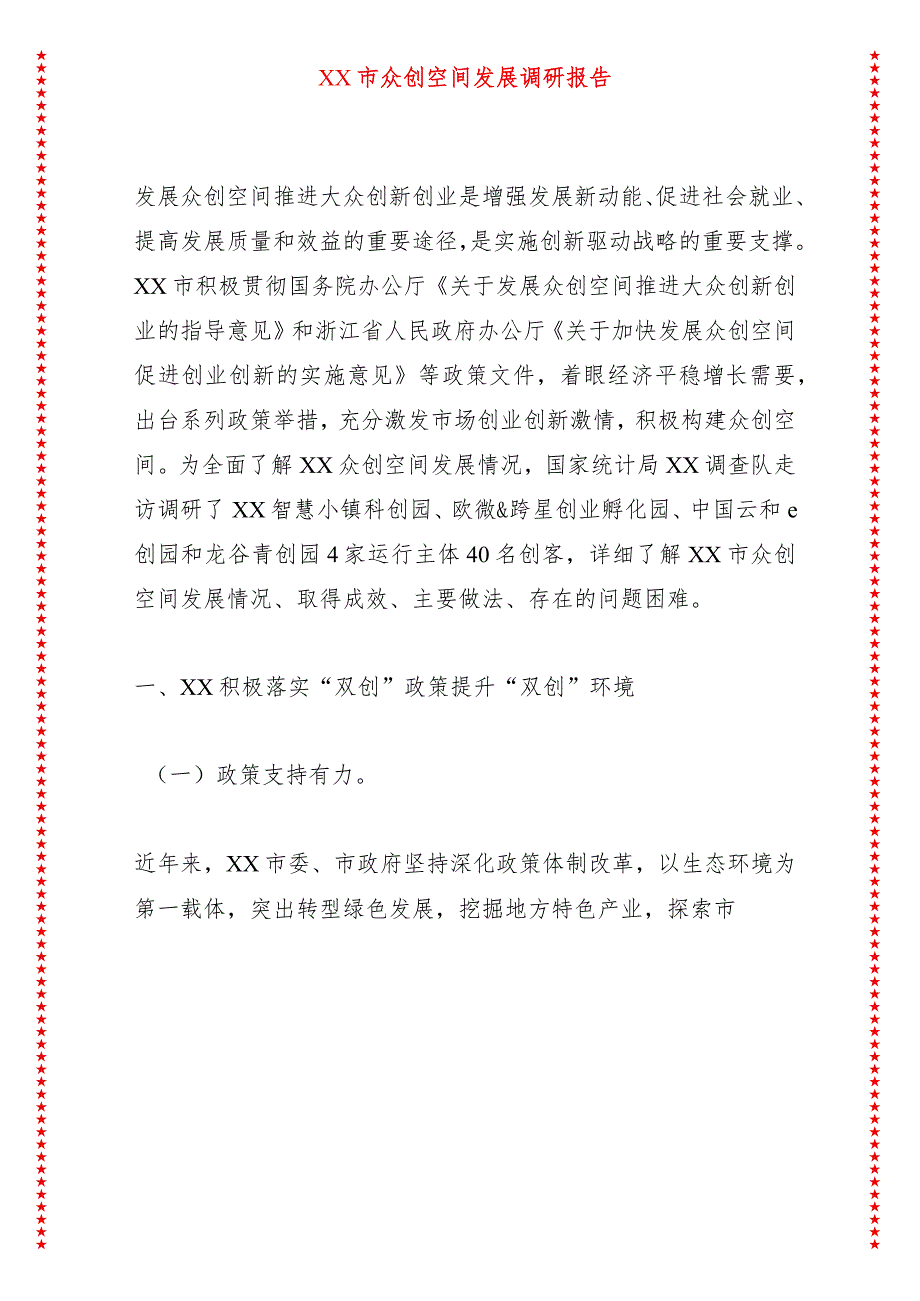 XX市众创空间发展调研报告
发展众创空间推进大众创新创业是增强发展新动能、促进社会就业、
提高发展质量和效益的重要途径，是实施创新驱动战略的重要支撑。
XX市积极贯彻国务院办公厅《关于发展众创空间推进大众创新创
业的指导意见》和浙江省人民政府办公厅《关于加快发展众创空间
促进创业创新的实施意见》等政策文件，着眼经济平稳增长需要，
出台系列政策举措，充分激发市场创业创新激情，积极构建众创空
间。为全面了解XX众创空间发展情况，国家统计局XX调查队走
访调研了XX智慧小镇科创园、欧微&跨星创业孵化园、中国云和e
创园和龙谷青创园4家运行主体40名创客，详细了解XX市众创
空间发展情况、取得成效、主要做法、存在的问题困难。
一、XX积极落实“双创”政策提升“双创”环境
（一）政策支持有力。
近年来，XX市委、市政府坚持深化政策体制改革，以生态环境为
第一载体，突出转型绿色发展，挖掘地方特色产业，探索市